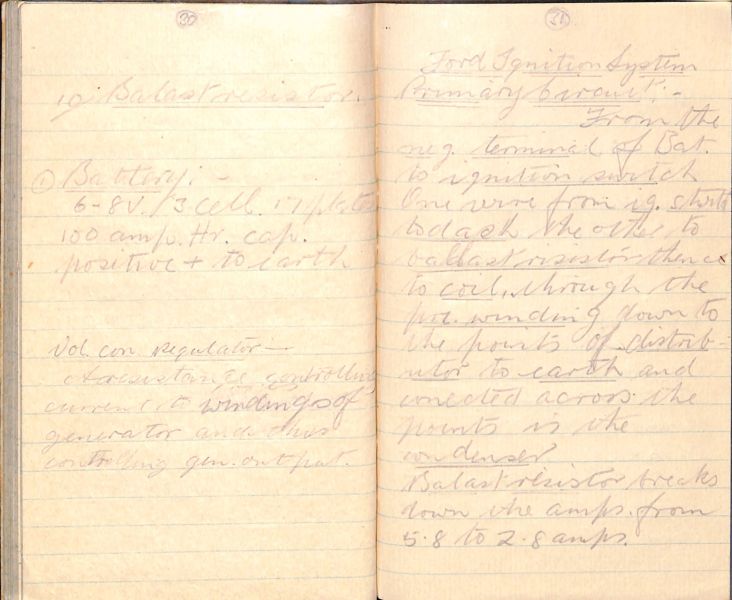 30
10 Balast resistor.
① Battery: -
6-8V. 3 cell. 17 plates
100 amp. Hr. cap.
positive + to earth
Vol. con. Regulator —
A resistance controlling
current to windings of
generator and thus
controlling gen. output.
31
Ford Ignition System
Primary Circuit: -
From the
neg. terminal of Bat.
to ignition switch
One wire from ig. switch
to dash the other to
ballast risistor thence
to coil, through the
pri. winding down to
the points of distrib-
utor to earth and
conected across the
points is the
condenser
Balast resistor breaks
down the amps. from
5.8 to 2.8 amps.